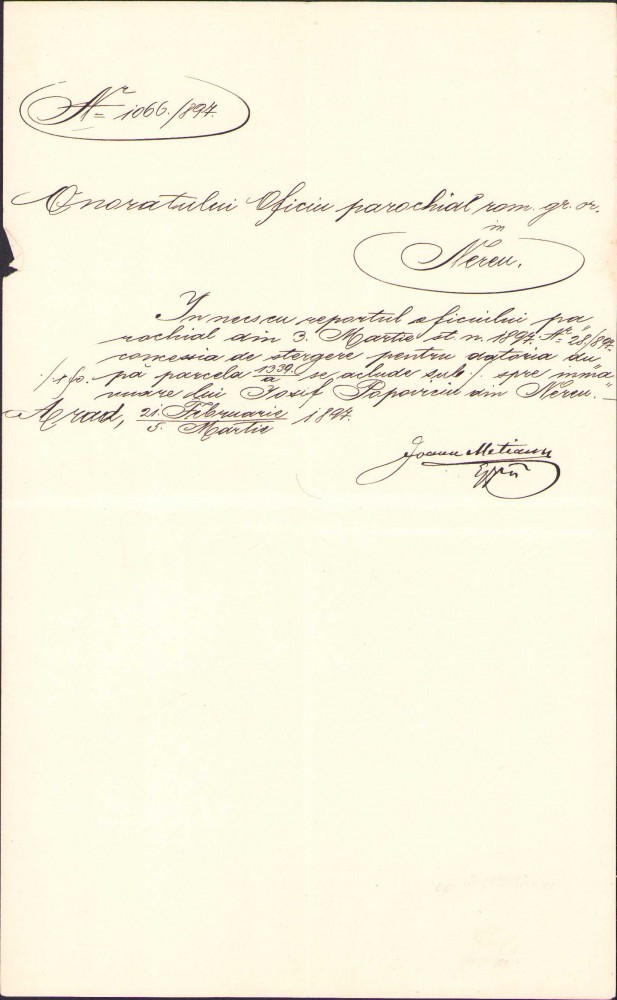 Nr 1066./894.
Onoratului Oficiu parochial rom. gr. or.
in
Nereu.
In necsu cu reportul oficiului pa
rochial din 3. Martie st. n. 1894. Nr 28/894.
concesia de stergere pentru datoria du
pă parcela 1339/a se aclude sub ·/. spre inma
nuare lui Iosif Popoviciu din Nereu.
Arad, 21. Februarie / 5. Martie 1894.
Ioan Metianu
Eppu